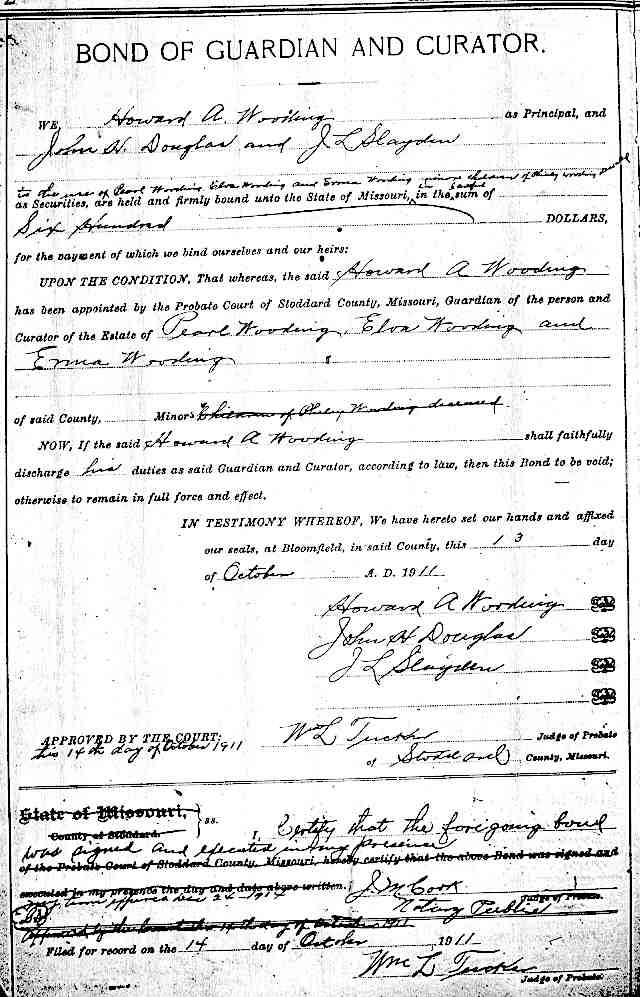 BOND OF GUARDIAN AND CURATOR.
WE, Howard A. Wooding as Principal, and
John H. Douglas and J L Slayden
to the use of Pearl Wooding Elva Wooding and Erma Wooding minor children of Wooding
as Securities, are held and firmly bound unto the State of Missouri, in the sum of
Six Hundred DOLLARS,
for the payment of which we bind ourselves and our heirs:
UPON THE CONDITION, That whereas, the said Howard A Wooding
has been appointed by the Probate Court of Stoddard County, Missouri, Guardian of the person and
Curator of the Estate of Pearl Wooding, Elva Wooding and
Erma Wooding
of said County, Minors Children of Wooding deceased
NOW, If the said Howard A Wooding shall faithfully
discharge his duties as said Guardian and Curator, according to law, then this Bond to be void;
otherwise to remain in full force and effect.
IN TESTIMONY WHEREOF, We have hereto set our hands and affixed
our seals, at Bloomfield, in said County, this 13 day
of October A. D. 1911
Howard A Wooding
John H Douglas
J L Slayden
APPROVED BY THE COURT:
this 14th day of October 1911
Wm L Tucker Judge of Probate
of Stoddard County, Missouri.
State of Missouri,
County of Stoddard. } ss.
I, Certify that the foregoing bond
was signed and executed in my presence
of the Probate Court of Stoddard County, Missouri, hereby certify that the above Bond was signed and
executed in my presence the day and date above written.
Dec 24 1914
J M Cook Judge of Probate.
Notary Public
Approved by the Court this 14th day of October 1911
Filed for record on the 14 day of October, 1911
Wm L Tucker
Judge of Probate.